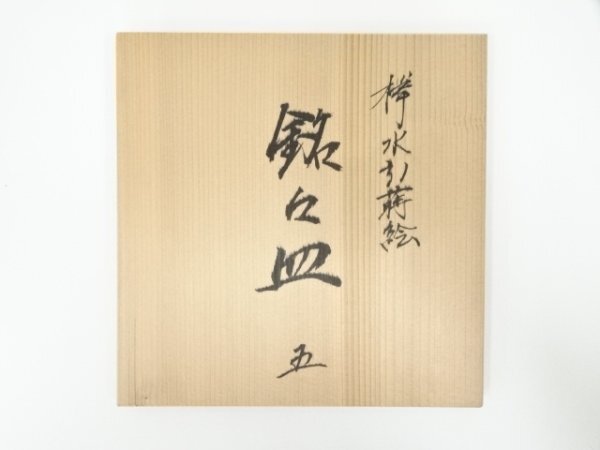 欅水引蒔絵
銘々皿
五